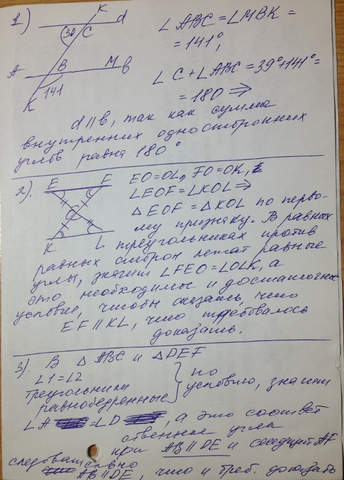 1)
K
d
39
C
A
B
M
b
K
141
∠ABC = ∠MBK =
= 141°;
∠C + ∠ABC = 39° + 141° =
= 180 ⇒
d ∥ b, так как сумма
внутренних односторонних
углов равна 180°
2).
E
F
O
K
L
EO = OL, FO = OK,
∠EOF = ∠KOL ⇒
△EOF = △KOL по перво-
му признаку. В равных
треугольниках против
равных сторон лежат равные
углы, значит ∠FEO = ∠OLK, а
это необходимое и достаточное
условие, чтобы сказать, что
EF ∥ KL, что требовалось
доказать.
3). В △ABC и △DEF
∠1 = ∠2
треугольники
равнобедренные
} по
условию, значит
∠A = ∠D, а это соответ
ственные углы
при AB ∥ DE и секущей AF
следовательно
AB ∥ DE, что и треб. доказать